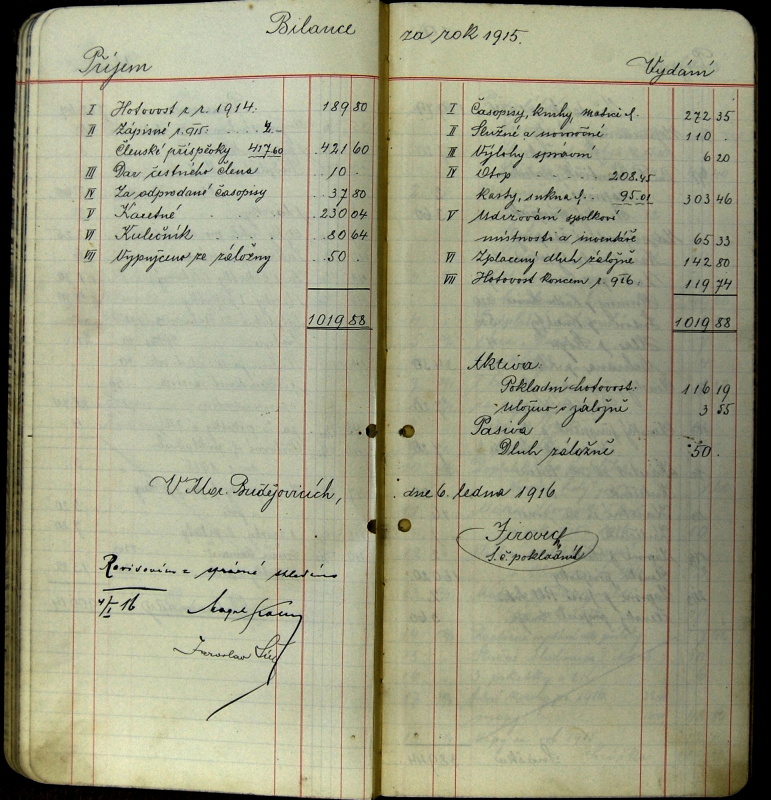 Bilance za rok 1915.
Příjem
I Hotovost z r. 1914. 189 80
II Zápisné r. 915. 4.-
Členské příspěvky 417.60 421 60
III Dar čestného člena 10 .
IV Za odprodané časopisy 37 80
V Kazetné 230 04
VI Kulečník 80 64
VII Vypůjčeno ze záložny 50 .
1019 88
V Mor. Budějovicích,
Revisováno a správné shledáno
I 16
Jaroslav
Vydání
I Časopisy, knihy, 272 35
II Služné a novoročné 110 .
III Výlohy správní 6 20
IV Otop 208.45
Karty, sukna 95.01 303 46
V Udržování spolkové
místnosti a inventáře 65 33
VI Zplacený dluh záložně 142 80
VII Hotovost koncem r. 916 119 74
1019 88
Aktiva:
Pokladní hotovost 116 19
Uloženo v záložně 3 55
Pasiva
Dluh záložně 50 .
dne 6. ledna 1916.
t. č. pokladník